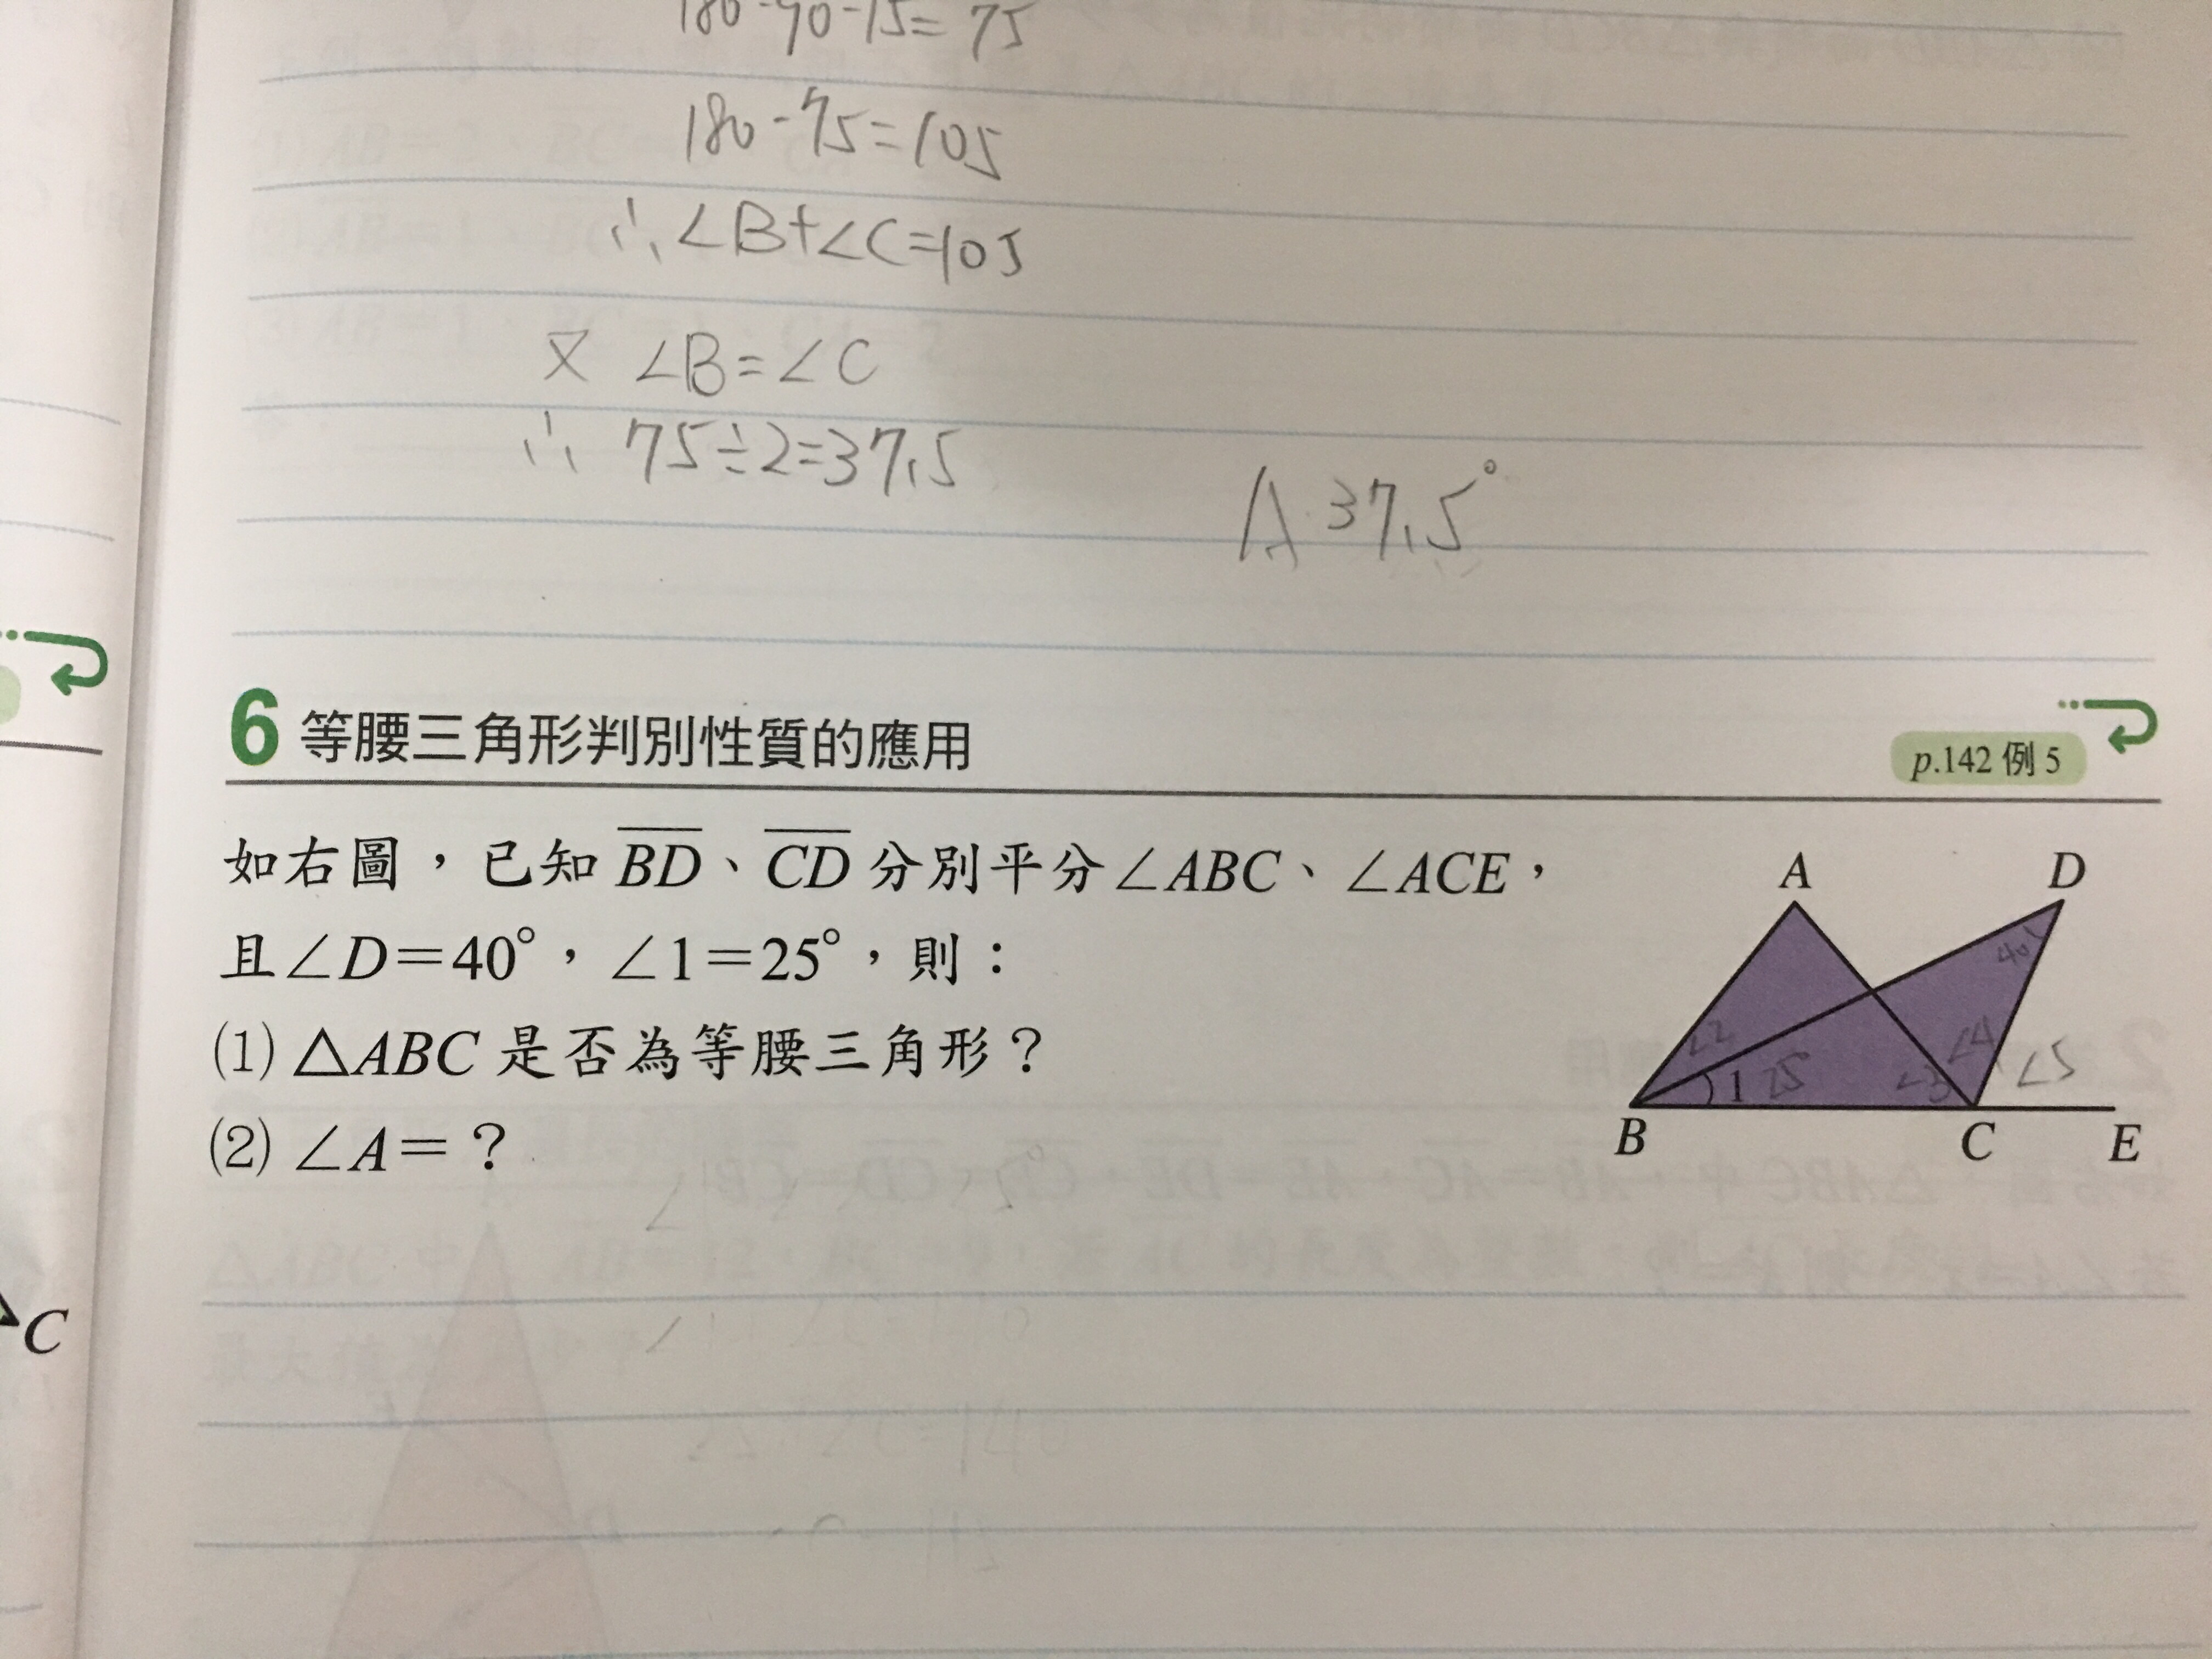 180-90-15=75
180-75=105
∴ ∠B+∠C=105
又 ∠B=∠C
∴ 75÷2=37.5
A 37.5°
6 等腰三角形判別性質的應用
p.142 例 5
如右圖，已知 BD、CD 分別平分∠ABC、∠ACE，
且∠D=40°，∠1=25°，則：
(1) △ABC 是否為等腰三角形？
(2) ∠A=？
A D
40
∠2 ∠4
1 25 ∠3 ∠5
B C E
C